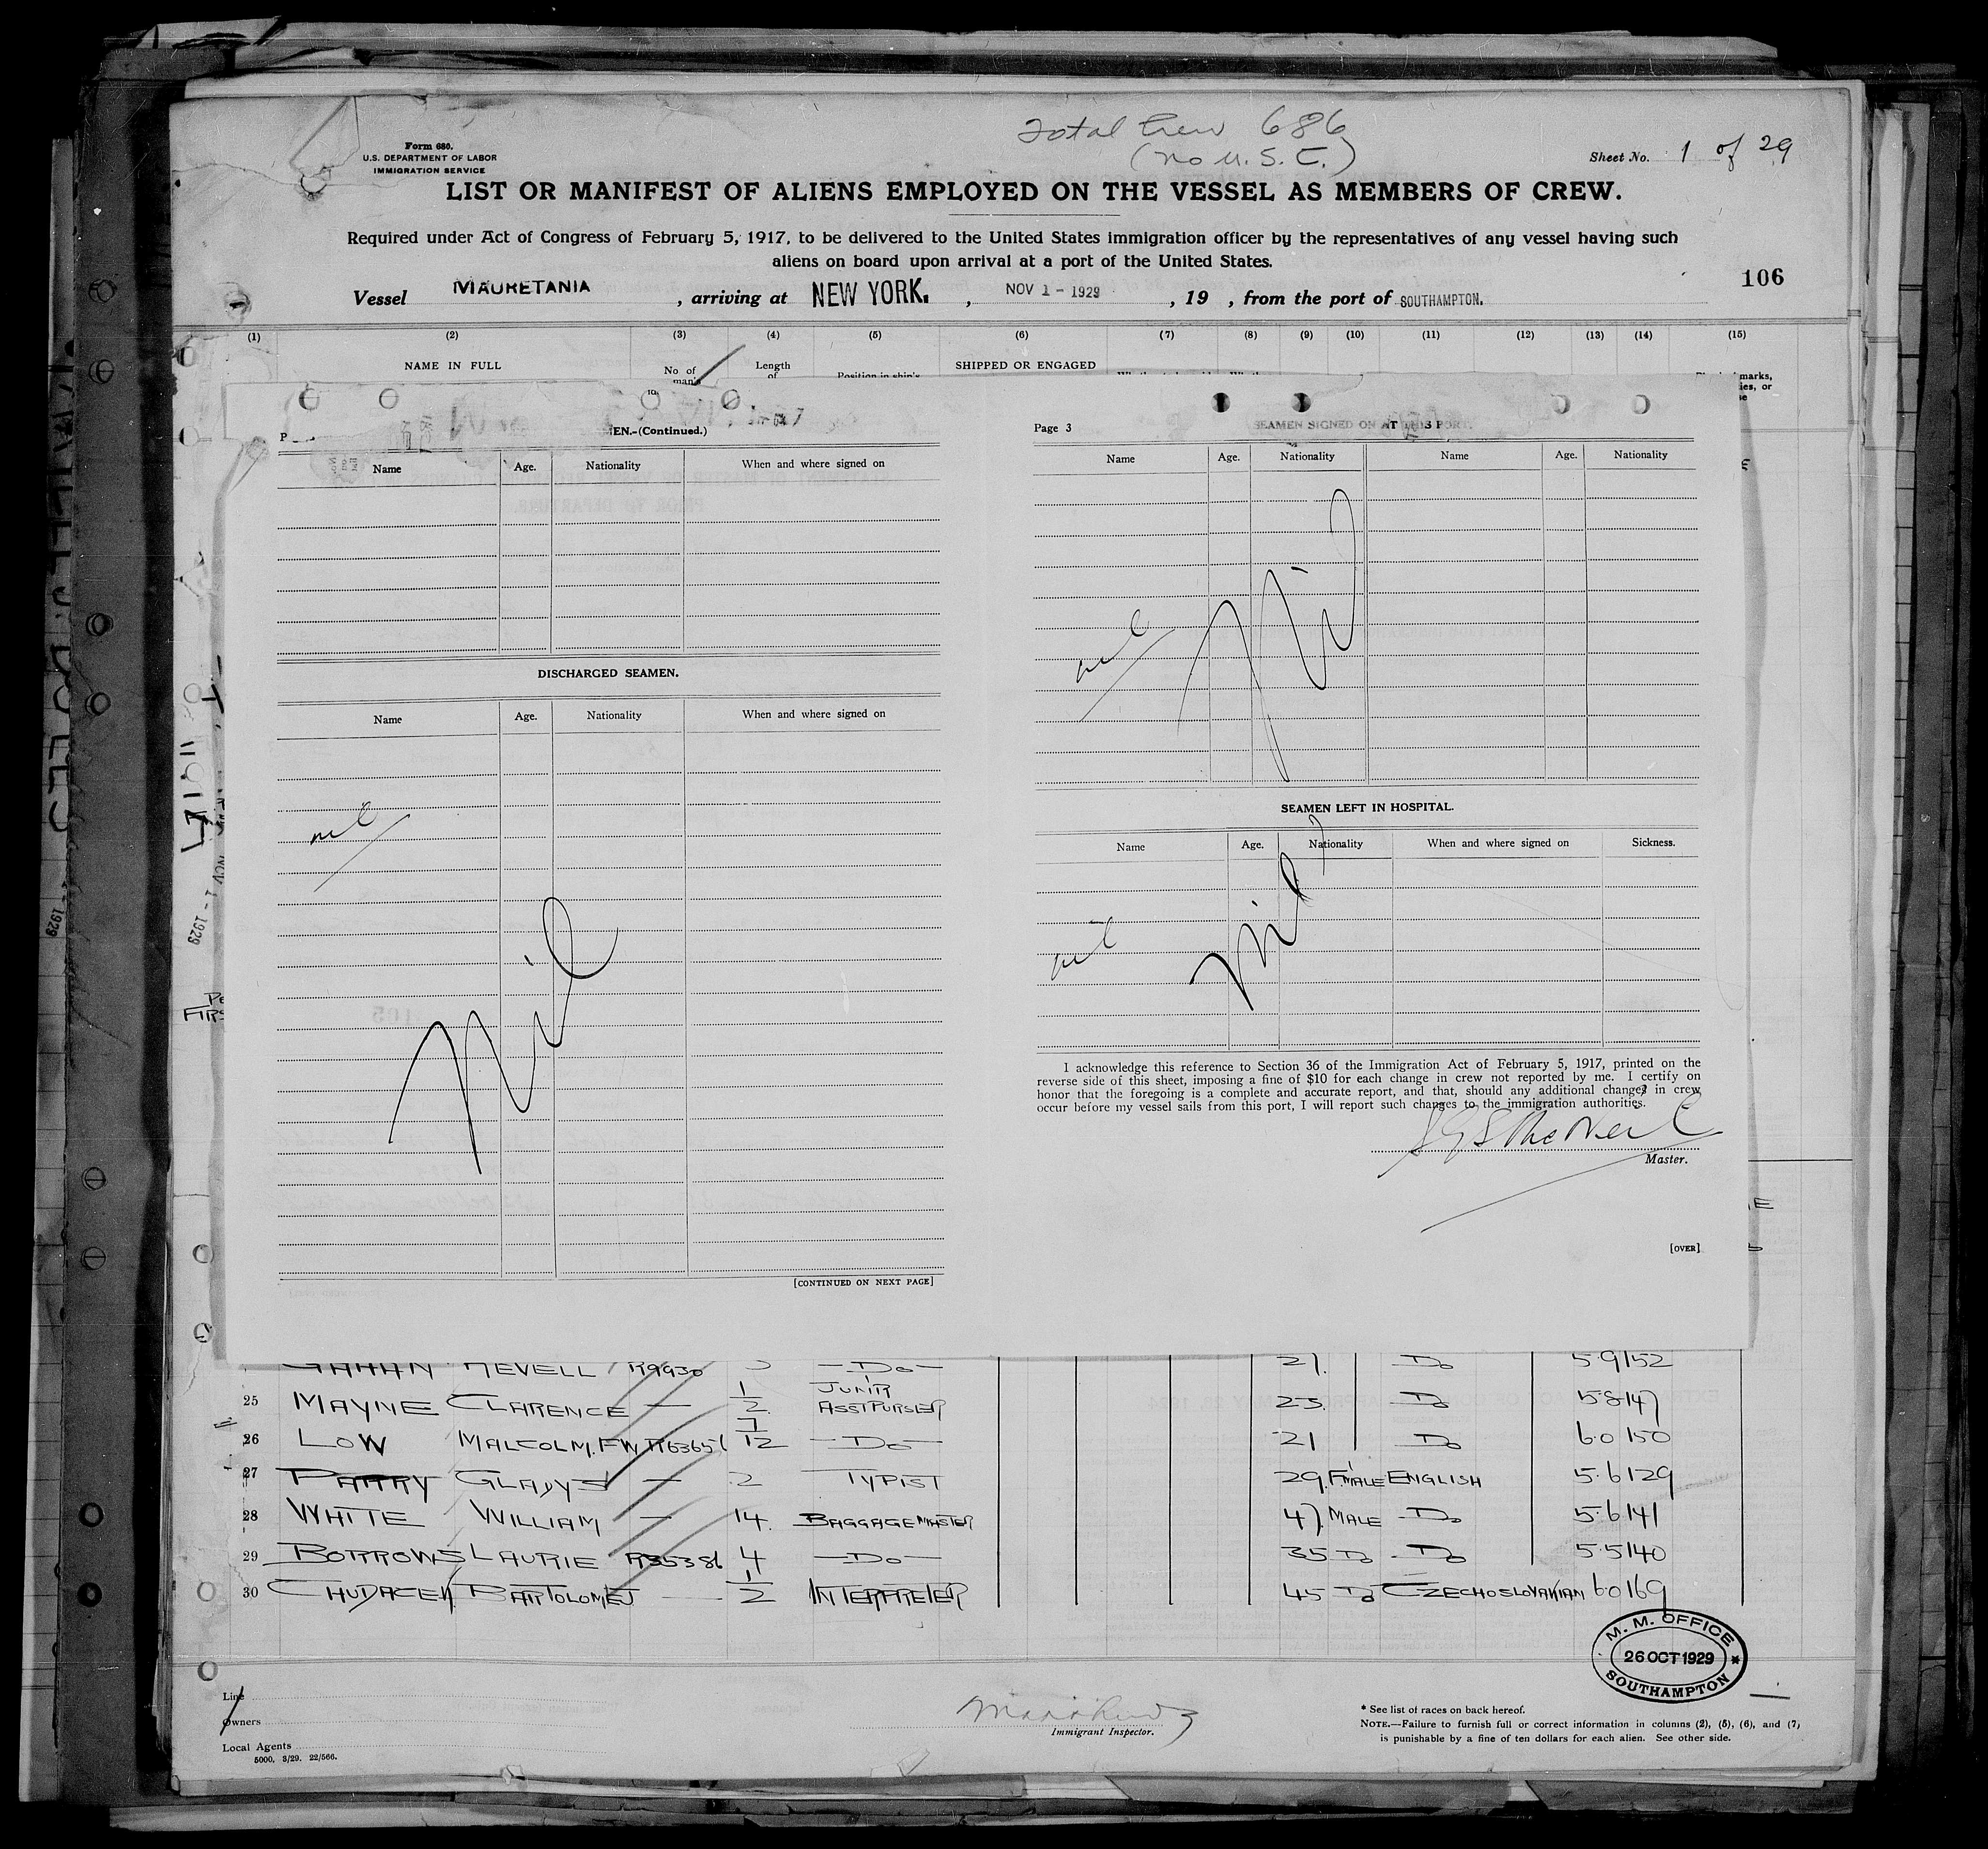 Total Crew 686
(no U.S.C.)
Form 680.
U.S. DEPARTMENT OF LABOR
IMMIGRATION SERVICE
Sheet No. 1 of 29
LIST OR MANIFEST OF ALIENS EMPLOYED ON THE VESSEL AS MEMBERS OF CREW.
Required under Act of Congress of February 5, 1917, to be delivered to the United States immigration officer by the representatives of any vessel having such
aliens on board upon arrival at a port of the United States.
106
Vessel MAURETANIA, arriving at NEW YORK., NOV 1 - 1929, 19 , from the port of SOUTHAMPTON.
(1) (2) (3) (4) (5) (6) (7) (8) (9) (10) (11) (12) (13) (14) (15)
NAME IN FULL No of man's Length of Position in ship's SHIPPED OR ENGAGED marks,
EN.-(Continued.)
Name Age. Nationality When and where signed on
DISCHARGED SEAMEN.
Name Age. Nationality When and where signed on
nil
Nil
[CONTINUED ON NEXT PAGE]
Page 3 SEAMEN SIGNED ON AT THIS PORT.
Name Age. Nationality Name Age. Nationality
nil
Nil
SEAMEN LEFT IN HOSPITAL.
Name Age. Nationality When and where signed on Sickness.
nil
Nil
I acknowledge this reference to Section 36 of the Immigration Act of February 5, 1917, printed on the
reverse side of this sheet, imposing a fine of $10 for each change in crew not reported by me. I certify on
honor that the foregoing is a complete and accurate report, and that, should any additional changes in crew
occur before my vessel sails from this port, I will report such changes to the immigration authorities.
Master.
[OVER]
NOV 1 - 1929
REVELL R9930 -Do- 27. Do 5.9 152
25 MAYNE CLARENCE — 1/2 JUNIR ASST PURSER 23. Do 5.8 147
26 LOW MALCOLM.F.W R63651 7/12 -Do- 21 Do 6.0 150
27 PARRY GLADYS — 2 TYPIST 29. F.MALE ENGLISH 5.6 129
28 WHITE WILLIAM — 14. BAGGAGE MASTER 47. MALE Do 5.6 141
29 BORROWS LAURIE R35386 4 -Do- 35 Do Do 5.5 140
30 CHUDACEK BARTOLOMEJ — 1/2 INTERPRETER 45 Do CZECHOSLOVAKIAN 6.0 169
M. M. OFFICE
26 OCT 1929
SOUTHAMPTON
Line
Owners
Local Agents
5000, 3/29. 22/566.
Immigrant Inspector.
* See list of races on back hereof.
NOTE.—Failure to furnish full or correct information in columns (2), (5), (6), and (7)
is punishable by a fine of ten dollars for each alien. See other side.